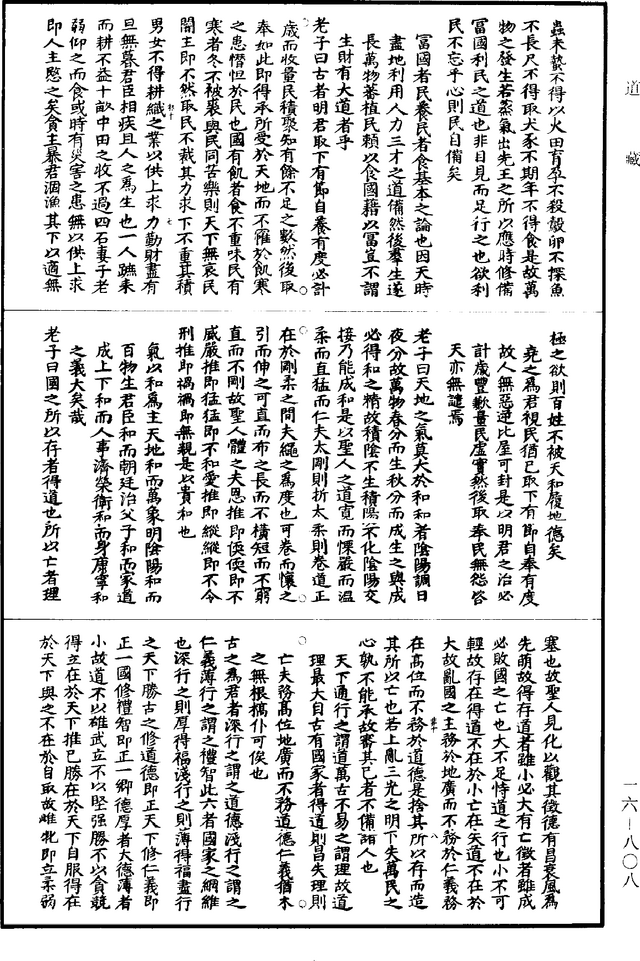 道藏
蟲未蟄不得以火田育孕不殺鷇卵不探魚
不長尺不得取犬豕不期年不得食是故萬
物之發生若蒸氣出先王之所以應時修備
富國利民之道也非目見而足行之也欲利
民不忘乎心則民自備矣
富國者民養民者食基本之論也因天時
盡地利用人力三才之道備然後羣生遂
長萬物蕃植民賴以食國藉以富豈不謂
生財有大道者乎
老子曰古者明君取下有節自養有度必計
歲而收量民積聚知有餘不足之數然後取
奉如此即得承所受於天地而不罹於飢寒
之患憯怛於民也國有飢者食不重味民有
寒者冬不被裘與民同苦樂則天下無哀民
闇主即不然取民不裁其力求下不重其積
男女不得耕織之業以供上求力勤財盡有
旦無暮君臣相疾且人之爲生也一人蹠耒
而耕不益十畝中田之收不過四石妻子老
弱仰之而食或時有災害之患無以供上求
即人主愍之矣貪主暴君涸漁其下以適無
極之欲則百姓不被天和履地德矣
堯之爲君視民猶己取下有節自奉有度
故人無惡逆比屋可封是以明君之治必
計歲豐歉量民虛實然後取奉民無怨咎
天亦無譴焉
老子曰天地之氣莫大於和和者陰陽調日
夜分故萬物春分而生秋分而成生之與成
必得和之精故積陰不生積陽不化陰陽交
接乃能成和是以聖人之道寬而慄嚴而溫
柔而直猛而仁夫太剛則折太柔則卷道正
在於剛柔之間夫繩之爲度也可卷而懷之
引而伸之可直而布之長而不橫短而不窮
直而不剛故聖人體之夫恩推即愞愞即不
威嚴推即猛猛即不和愛推即縱縱即不令
刑推即禍禍即無親是以貴和也
氣以和爲主天地和而萬象明陰陽和而
百物生君臣和而朝廷治父子和而家道
成上下和而人事濟榮衛和而身康寧和
之義大矣哉
老子曰國之所以存者得道也所以亡者理
塞也故聖人見化以觀其徵德有昌衰風爲
先萌故得存道者雖小必大有亡徵者雖成
必敗國之亡也大不足恃道之行也小不可
輕故存在得道不在於小亡在失道不在於
大故亂國之主務於地廣而不務於仁義務
在高位而不務於道德是捨其所以存而造
其所以亡也若上亂三光之明下失萬民之
心孰不能承故審其己者不備諸人也
天下通行之謂道萬古不易之謂理故道
理最大自古有國家者得道則昌失理則
亡夫務高位地廣而不務道德仁義猶木
之無根槁仆可俟也
古之爲君者深行之謂之道德淺行之謂之
仁義薄行之謂之禮智此六者國家之綱維
也深行之則厚得福淺行之則薄得福盡行
之天下勝古之修道德即正天下修仁義即
正一國修禮智即正一鄉德厚者大德薄者
小故道不以雄武立不以堅强勝不以貪競
得立在於天下推己勝在於天下自服得在
於天下與之不在於自取故雌牝即立柔弱
一六-八〇八